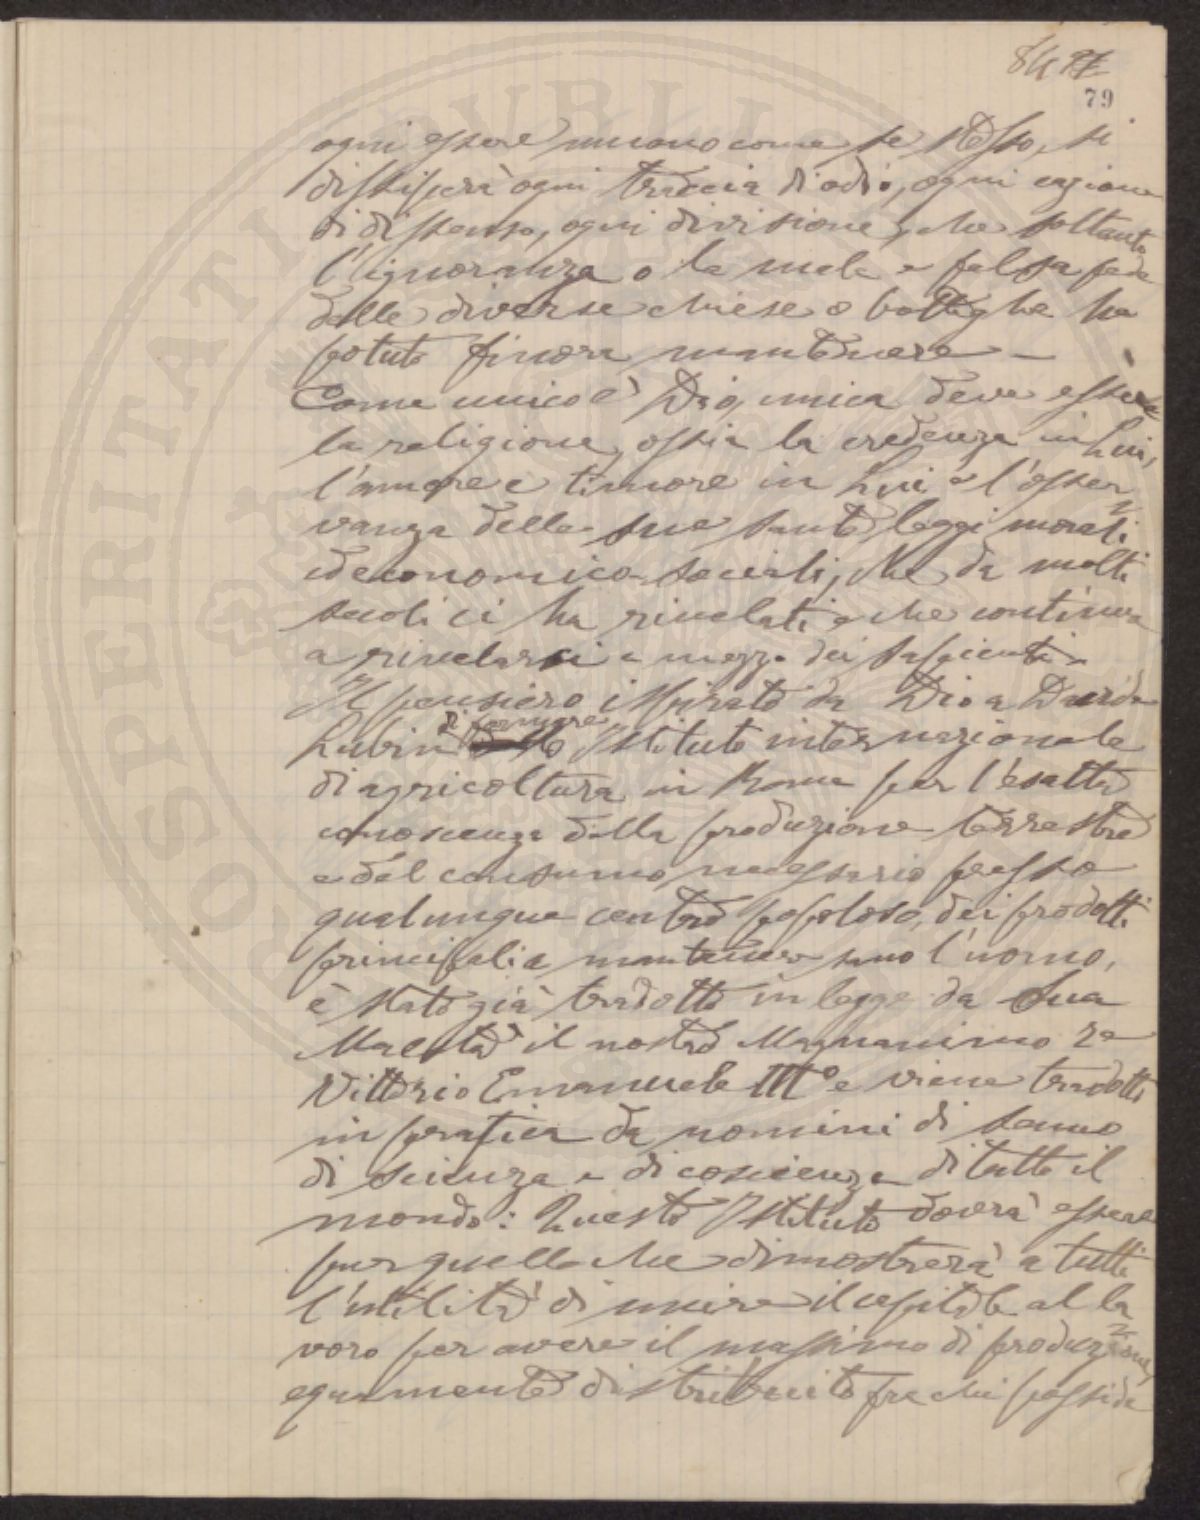 84 77
79
ogni essere umano come se stesso, si
dissiperà ogni traccia di odio, ogni cagione
di dissenso, ogni divisione, che soltanto
l'ignoranza o la mala e falsa fede
delle diverse chiese o botteghe ha
potuto finora mantenere –
Come unico è Dio, unica deve essere
la religione, ossia la credenza in Lui,
l'amore e timore in Lui e l'osser-
vanza delle sue sante leggi morali
ed economico-sociali, che da molti
secoli ci ha rivelati e che continua
a rivelarci a mezzo dei sapienti –
Il pensiero ispirato da Dio a David
Lubin di formare Istituto internazionale
di agricoltura in Roma per l'esatta
conoscenza della produzione terrestre
e del consumo necessario presso
qualunque centro popoloso, dei prodotti
principali a mantenere sano l'uomo,
è stato già tradotto in legge da Sua
Maestà il nostro Magnanimo Re
Vittorio Emanuele III° e viene tradotto
in pratica da uomini di senno
di scienza e di coscienza di tutto il
mondo: Questo Istituto dovrà essere
pur quello che dimostrerà a tutti
l'utilità di unire il capitale al la-
voro per avere il massimo di produzione,
equamente distribuito fra chi possiede